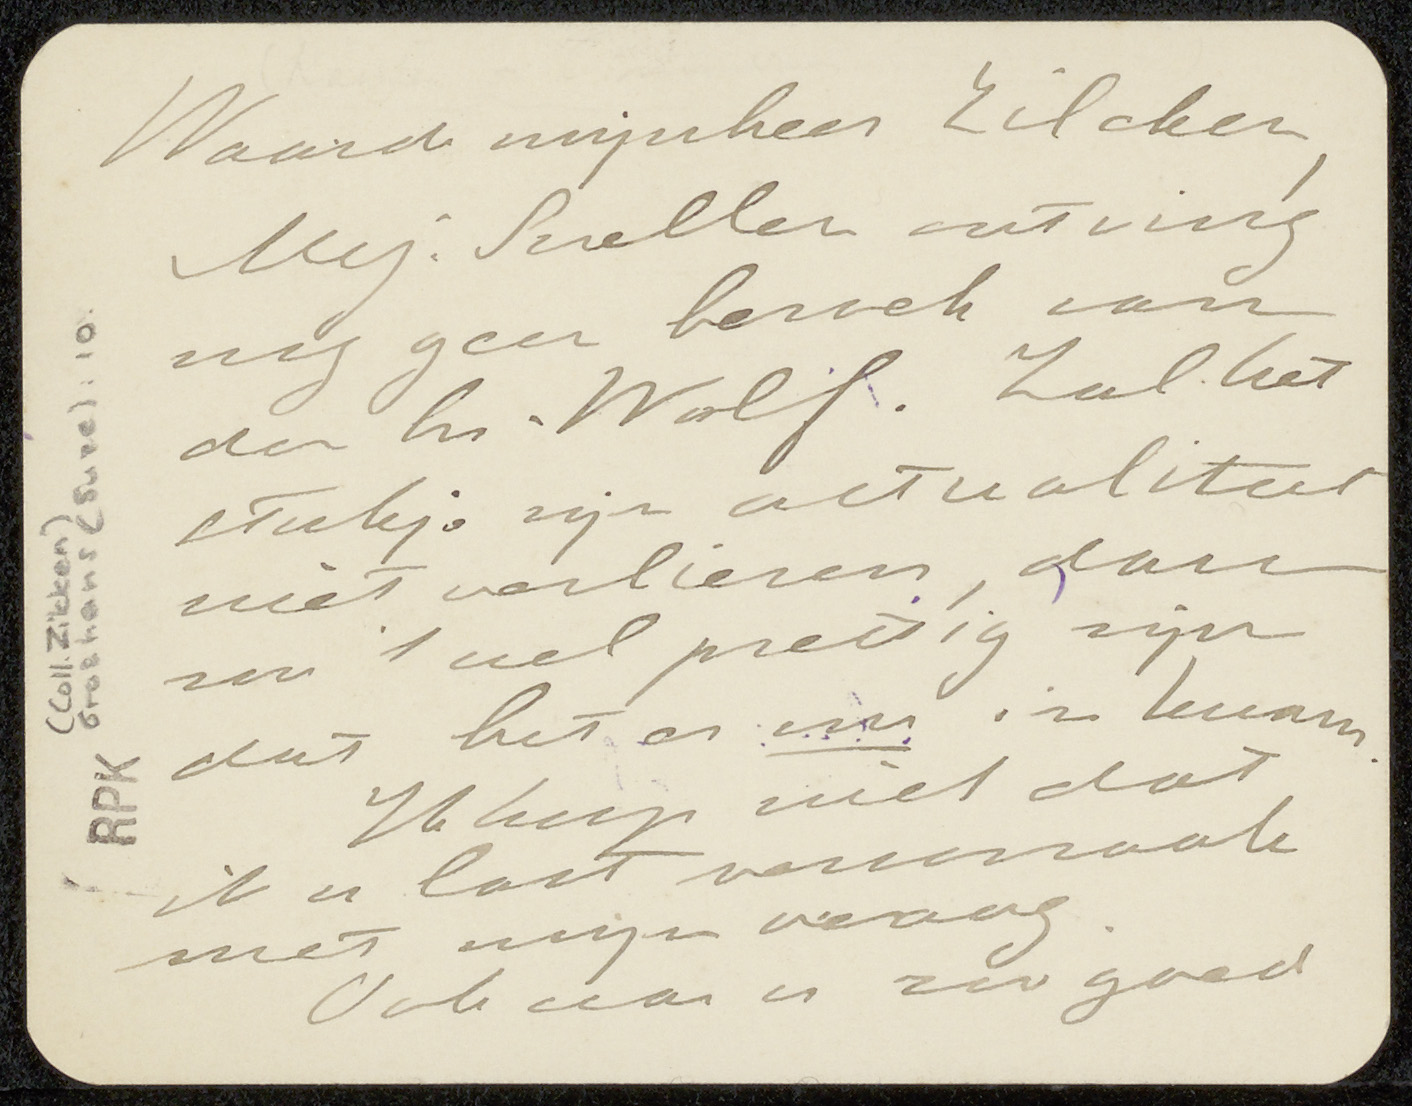 Waarde mijnheer Zilcken,
Mej. Sneller ontving
nog geen bezoek van
den hr. Wolf. Zal het
stukje zijn actualiteit
niet verliezen, dan
zou 't wel prettig zijn
dat het er nu in kwam.
Ik hoop niet dat
ik u last veroorzaak
met mijn vraag.
Ook was u zoo goed
(Coll. Zikken)
Grothans (Suze): 10.
RPK